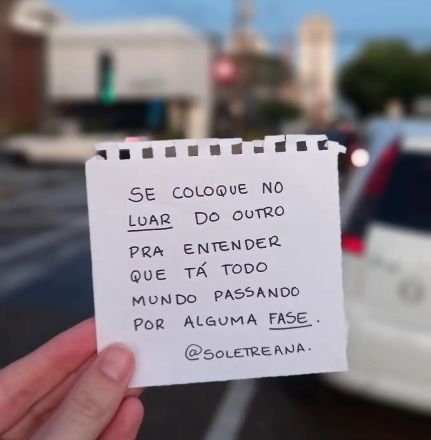 SE COLOQUE NO
LUAR DO OUTRO
PRA ENTENDER
QUE TÁ TODO
MUNDO PASSANDO
POR ALGUMA FASE.
@SOLETREANA.